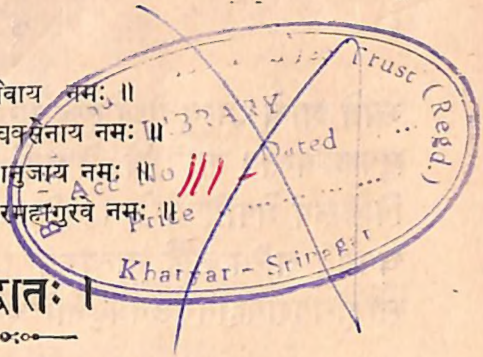 वाय नमः ॥
वक्सेनाय नमः ॥
ानुजाय नमः ॥
रमहागुरवे नमः ॥
ातः ।
Trust (Regd.)
LIBRARY
Dated ...
Acc No 111
Price ............
Kharyar - Srinagar